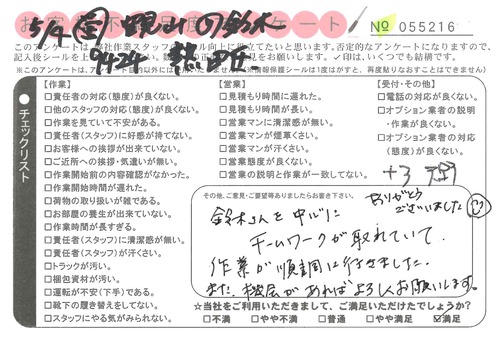 № 055216
5/4 (金)
このアンケートは
記入後シールを
✓印は、いくつでも結構です。
チェックリスト
【作業】
□責任者の対応(態度)が良くない。
□他のスタッフの対応(態度)が良くない。
□作業を見ていて不安がある。
□責任者(スタッフ)に好感が持てない。
□お客様への挨拶が出来ていない。
□ご近所への挨拶・気遣いが無い。
□作業開始前の内容確認がなかった。
□作業開始時間が遅れた。
□荷物の取り扱いが雑である。
□お部屋の養生が出来ていない。
□作業時間が長すぎる。
□責任者(スタッフ)に清潔感が無い。
□責任者(スタッフ)が汗くさい。
□トラックが汚い。
□梱包資材が汚い。
□運転が不安(下手)である。
□靴下の履き替えをしてない。
□スタッフにやる気がみられない。
【営業】
□見積もり時間に遅れた。
□見積もり時間が長い。
□営業マンに清潔感が無い。
□営業マンが煙草くさい。
□営業マンが汗くさい。
□営業態度が良くない。
□営業の説明と作業が一致してない。
【受付・その他】
□電話の対応が良くない。
□オプション業者の説明
・作業が良くない。
□オプション業者の対応
(態度)が良くない。
その他、ご意見・ご要望等ありましたらお書き下さい。
ありがとう
ございました
鈴木さんを中心に
チームワークが取れていて
作業が順調に行きました。
また、機会があればよろしくお願いします。
☆当社をご利用いただきまして、ご満足いただけたでしょうか?
□不満 □やや不満 □普通 □やや満足 ☑満足